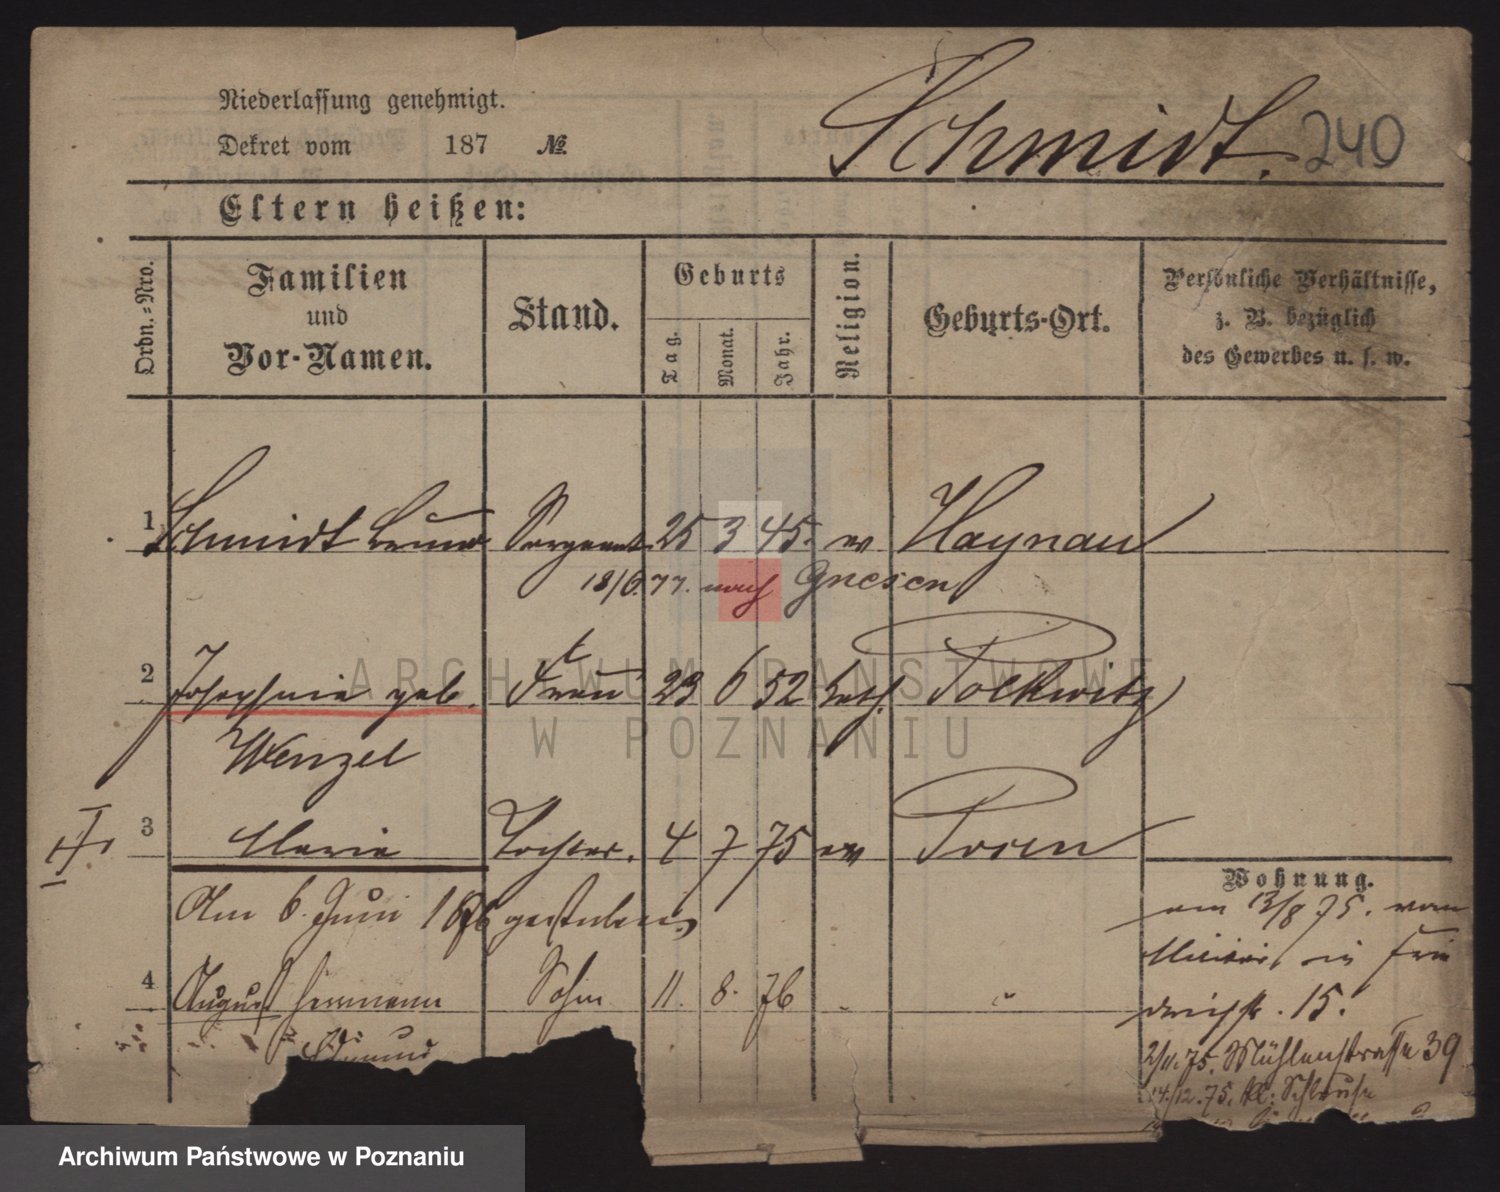 Niederlassung genehmigt.
Dekret vom 187 №
Schmidt. 240
Eltern heißen:
Ordn.-Nro.
Familien und Vor-Namen.
Stand.
Geburts
Tag.
Monat.
Jahr.
Religion.
Geburts-Ort.
Persönliche Verhältnisse,
z. B. bezüglich
des Gewerbes u. s. w.
1 Schmidt Bruno Sergeant 25 3 45. ev Haynau
18/6.77. nach Gnesen
2 Josephine geb. Frau 23 6 52 kath. Polkwitz
Wenzel
3 Marie Tochter. 4 7 75 ev Posen
Am 6. Juni 1876 gestorben
4 August Hermann Sohn 11. 8. 76 "
Edmund
Wohnung.
am 13/8 75. vom
Militär in Frie
drichstr. 15.
2/11.75. Mühlenstrasse 39
14/12.75. Kl: Schleuse
ARCHIWUM PAŃSTWOWE
W POZNANIU
Archiwum Państwowe w Poznaniu